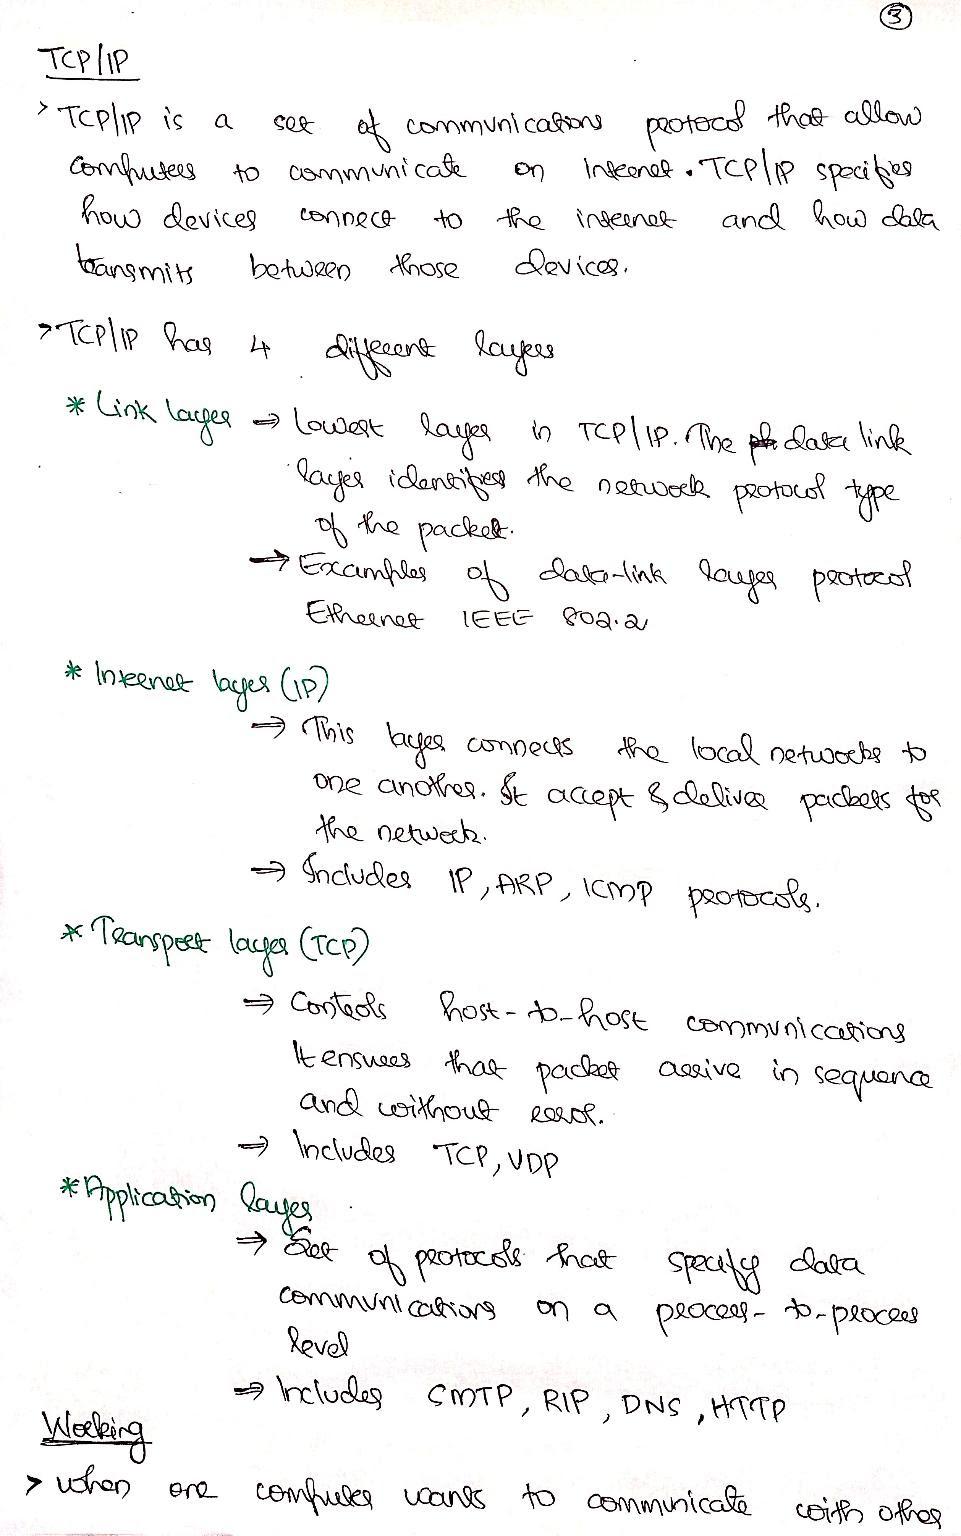 3
TCP/IP
> TCP/IP is a set of communications protocol that allow
computers to communicate on Internet. TCP/IP specifies
how devices connect to the internet and how data
transmits between those devices.
> TCP/IP has 4 different layers
* Link layer ⇒ Lowest layer in TCP/IP. The data link
layer identifies the network protocol type
of the packet.
⇒ Examples of data-link layer protocol
Ethernet IEEE 802.2
* Internet layer (IP)
⇒ This layer connects the local networks to
one another. It accept & deliver packets for
the network.
⇒ Includes IP, ARP, ICMP protocols.
* Transport layer (TCP)
⇒ Contols host-to-host communications
It ensures that packet arrive in sequence
and without error.
⇒ Includes TCP, UDP
* Application layer
⇒ Set of protocols that specify data
communications on a process-to-process
level
⇒ Includes SMTP, RIP, DNS, HTTP
Working
> When one computer wants to communicate with other